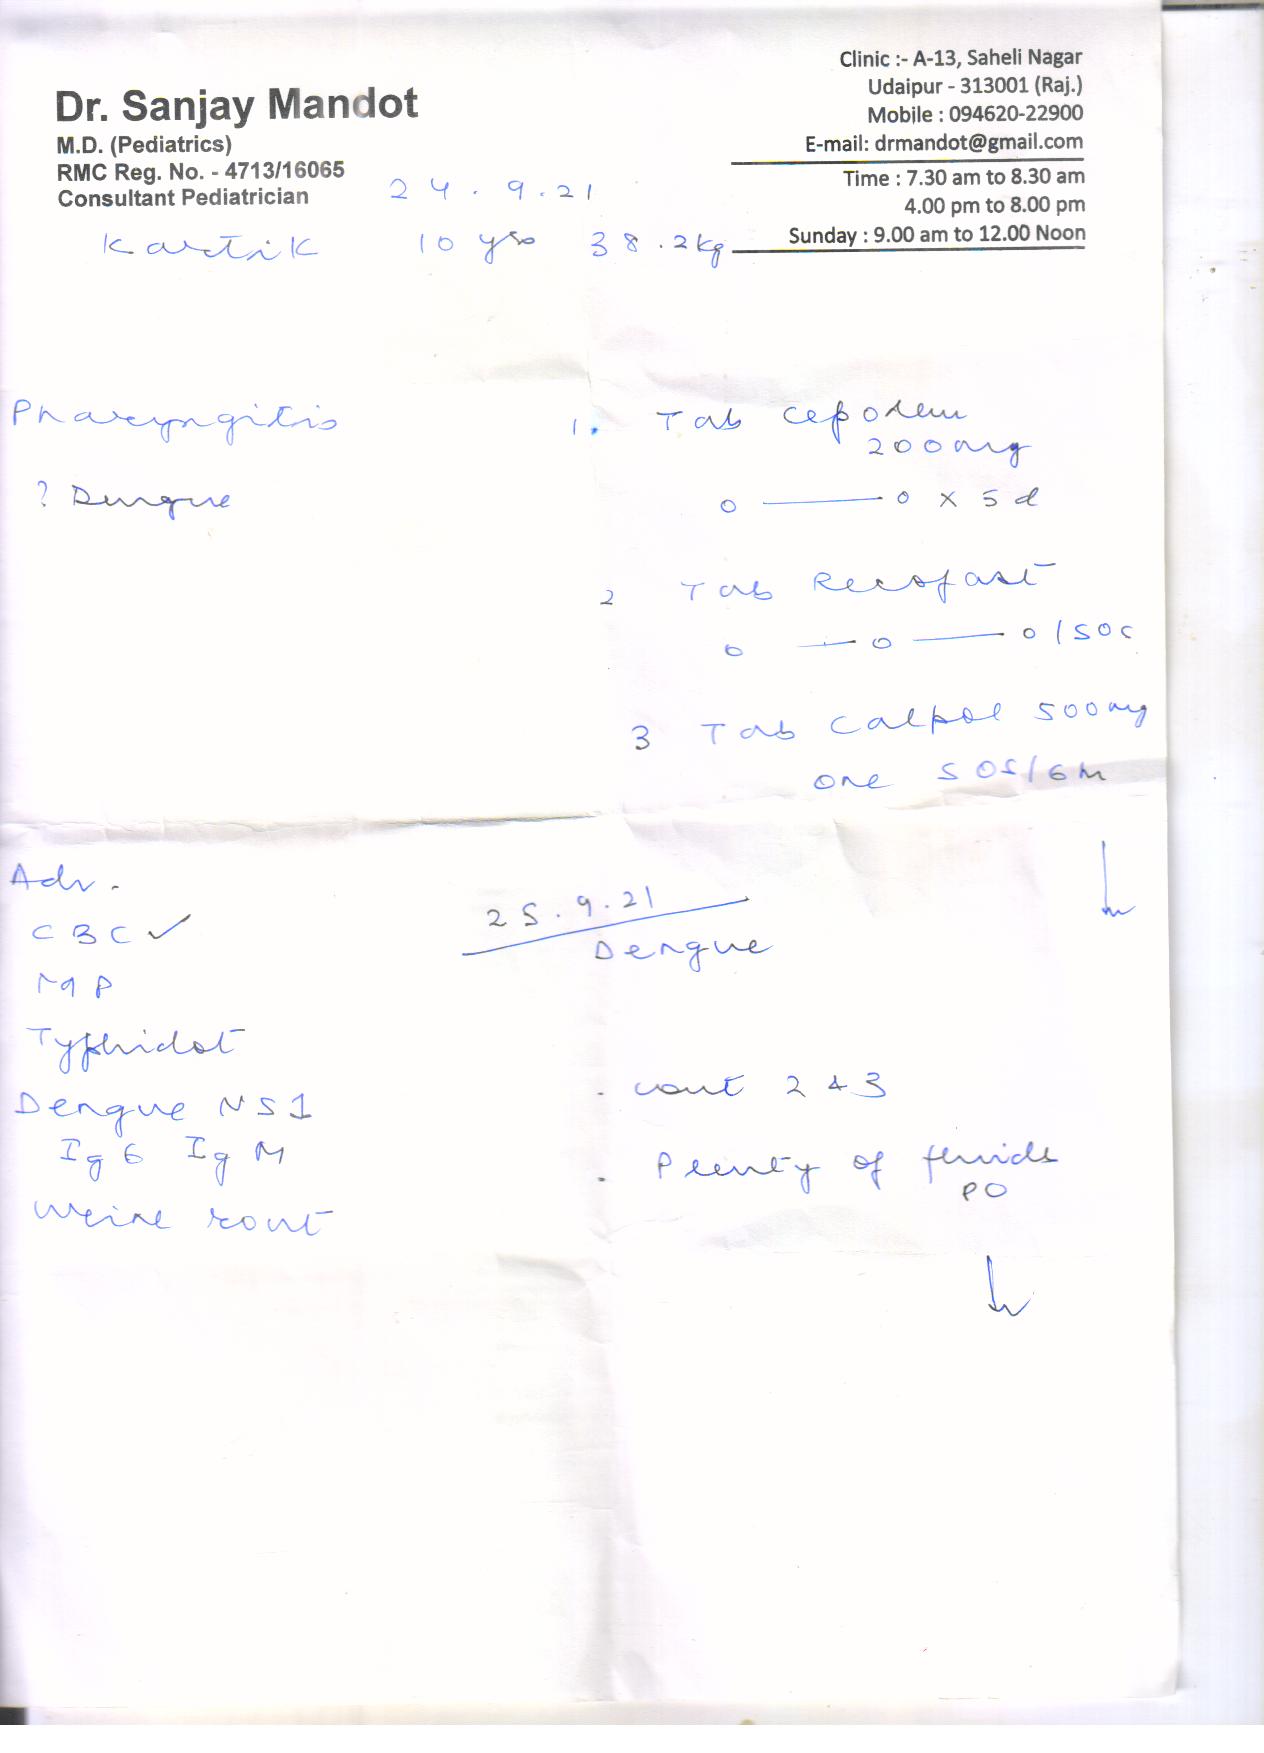 Dr. Sanjay Mandot
M.D. (Pediatrics)
RMC Reg. No. - 4713/16065
Consultant Pediatrician
Clinic :- A-13, Saheli Nagar
Udaipur - 313001 (Raj.)
Mobile : 094620-22900
E-mail: drmandot@gmail.com
Time : 7.30 am to 8.30 am
4.00 pm to 8.00 pm
Sunday : 9.00 am to 12.00 Noon
24.9.21
Kartik 10 yrs 38.2kg
Pharyngitis
? Dengue
1. Tab Cepodem
200mg
o — o x 5 d
2 Tab
o — o — o
3 Tab Calpol 500mg
one SOS/6h
Adv.
CBC ✓
MP
Typhidot
Dengue NS1
IgG IgM
Urine
25.9.21
Dengue
. cont 2 & 3
. Plenty of fluids
PO